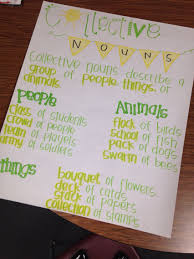 Collective
NOUNS
collective nouns describe a
group of people, things, or
animals.
People
class of students
crowd of people
team of players
army of soldiers
Animals
flock of birds
school of fish
pack of dogs
swarm of bees
Things
bouquet of flowers
deck of cards
stack of papers
collection of stamps